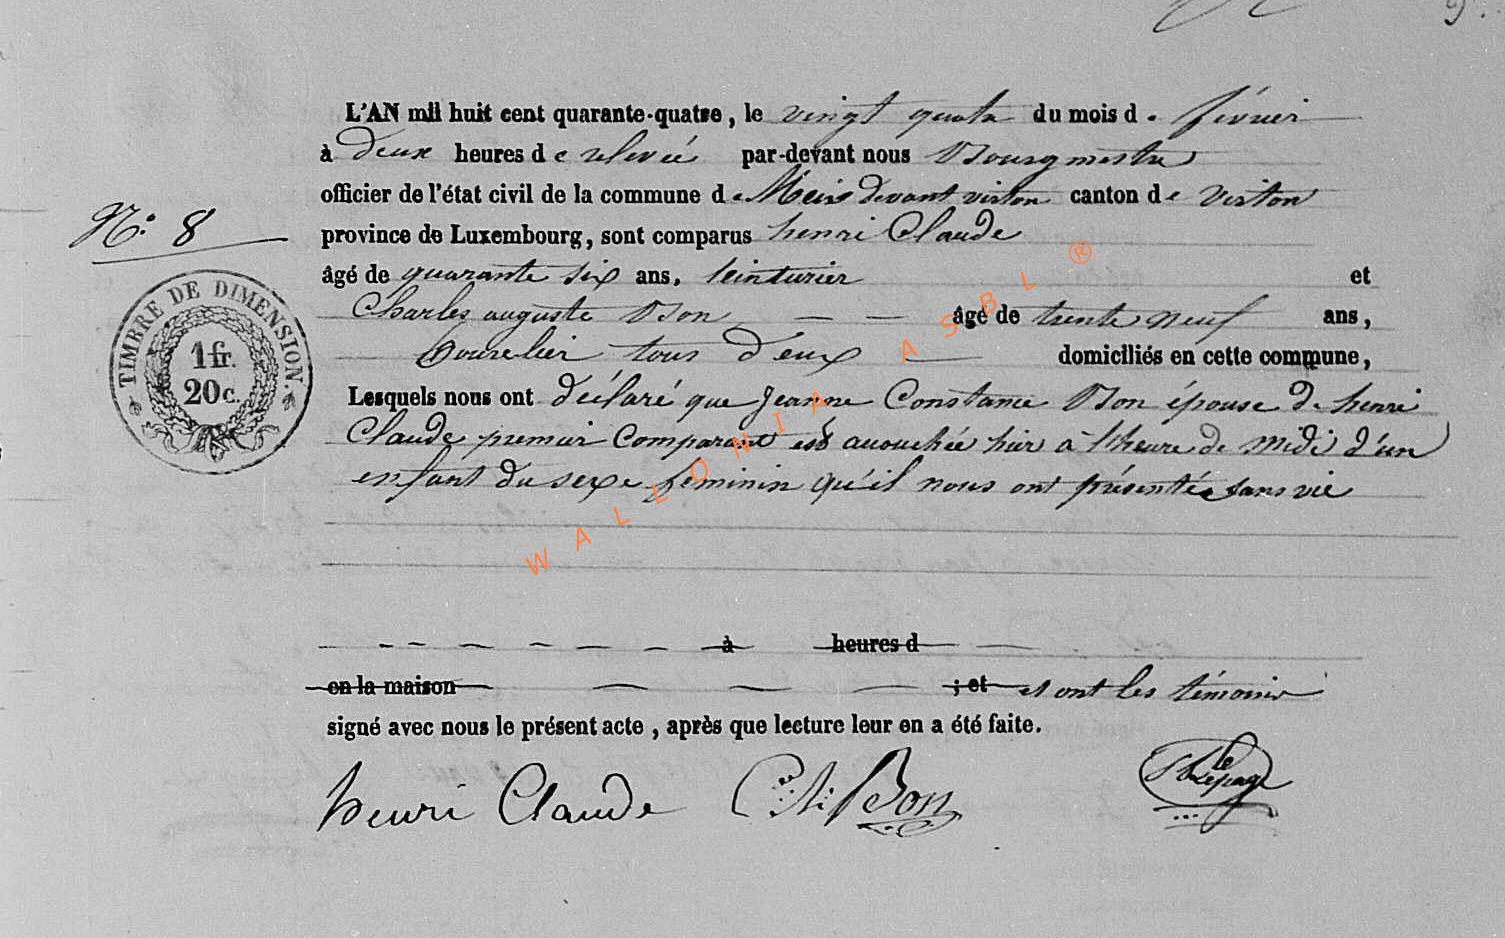 L'AN mil huit cent quarante-quatre, le vingt quatre du mois de février
à deux heures de relevée par-devant nous Bourgmestre
officier de l'état civil de la commune de Meix devant virton canton de virton
N.° 8
province de Luxembourg, sont comparus henri Claude
âgé de quarante six ans, teinturier et
Charles auguste Bon âgé de trente neuf ans,
bourelier tous d'eux domiciliés en cette commune,
TIMBRE DE DIMENSION.
1 fr.
20 c.
Lesquels nous ont déclaré que Jeanne Constance Bon épouse de henri
Claude premier Comparant est accouchée hier à l'heure de midi d'un
enfant du sexe féminin qu'il nous ont présentée sans vie
à heures d
en la maison ; et et ont les témoins
signé avec nous le présent acte, après que lecture leur en a été faite.
henri Claude C: A: Bon Lepage
WALLONIA ASBL ®